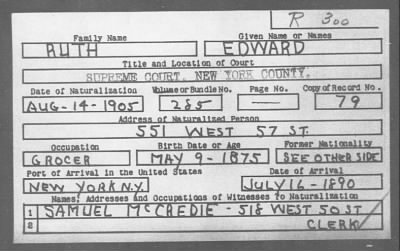 R 300
Family Name Given Name or Names
RUTH EDWARD
Title and Location of Court
SUPREME COURT, NEW YORK COUNTY.
Date of Naturalization Volume or Bundle No. Page No. Copy of Record No.
AUG-14-1905 285 — 79
Address of Naturalized Person
551 WEST 57 ST.
Occupation Birth Date or Age Former Nationality
GROCER MAY 9-1875 SEE OTHER SIDE
Port of Arrival in the United States Date of Arrival
NEW YORK N.Y. JULY 16-1890
Names, Addresses and Occupations of Witnesses to Naturalization
1 SAMUEL McCREDIE - 518 WEST 50 ST
2 CLERK